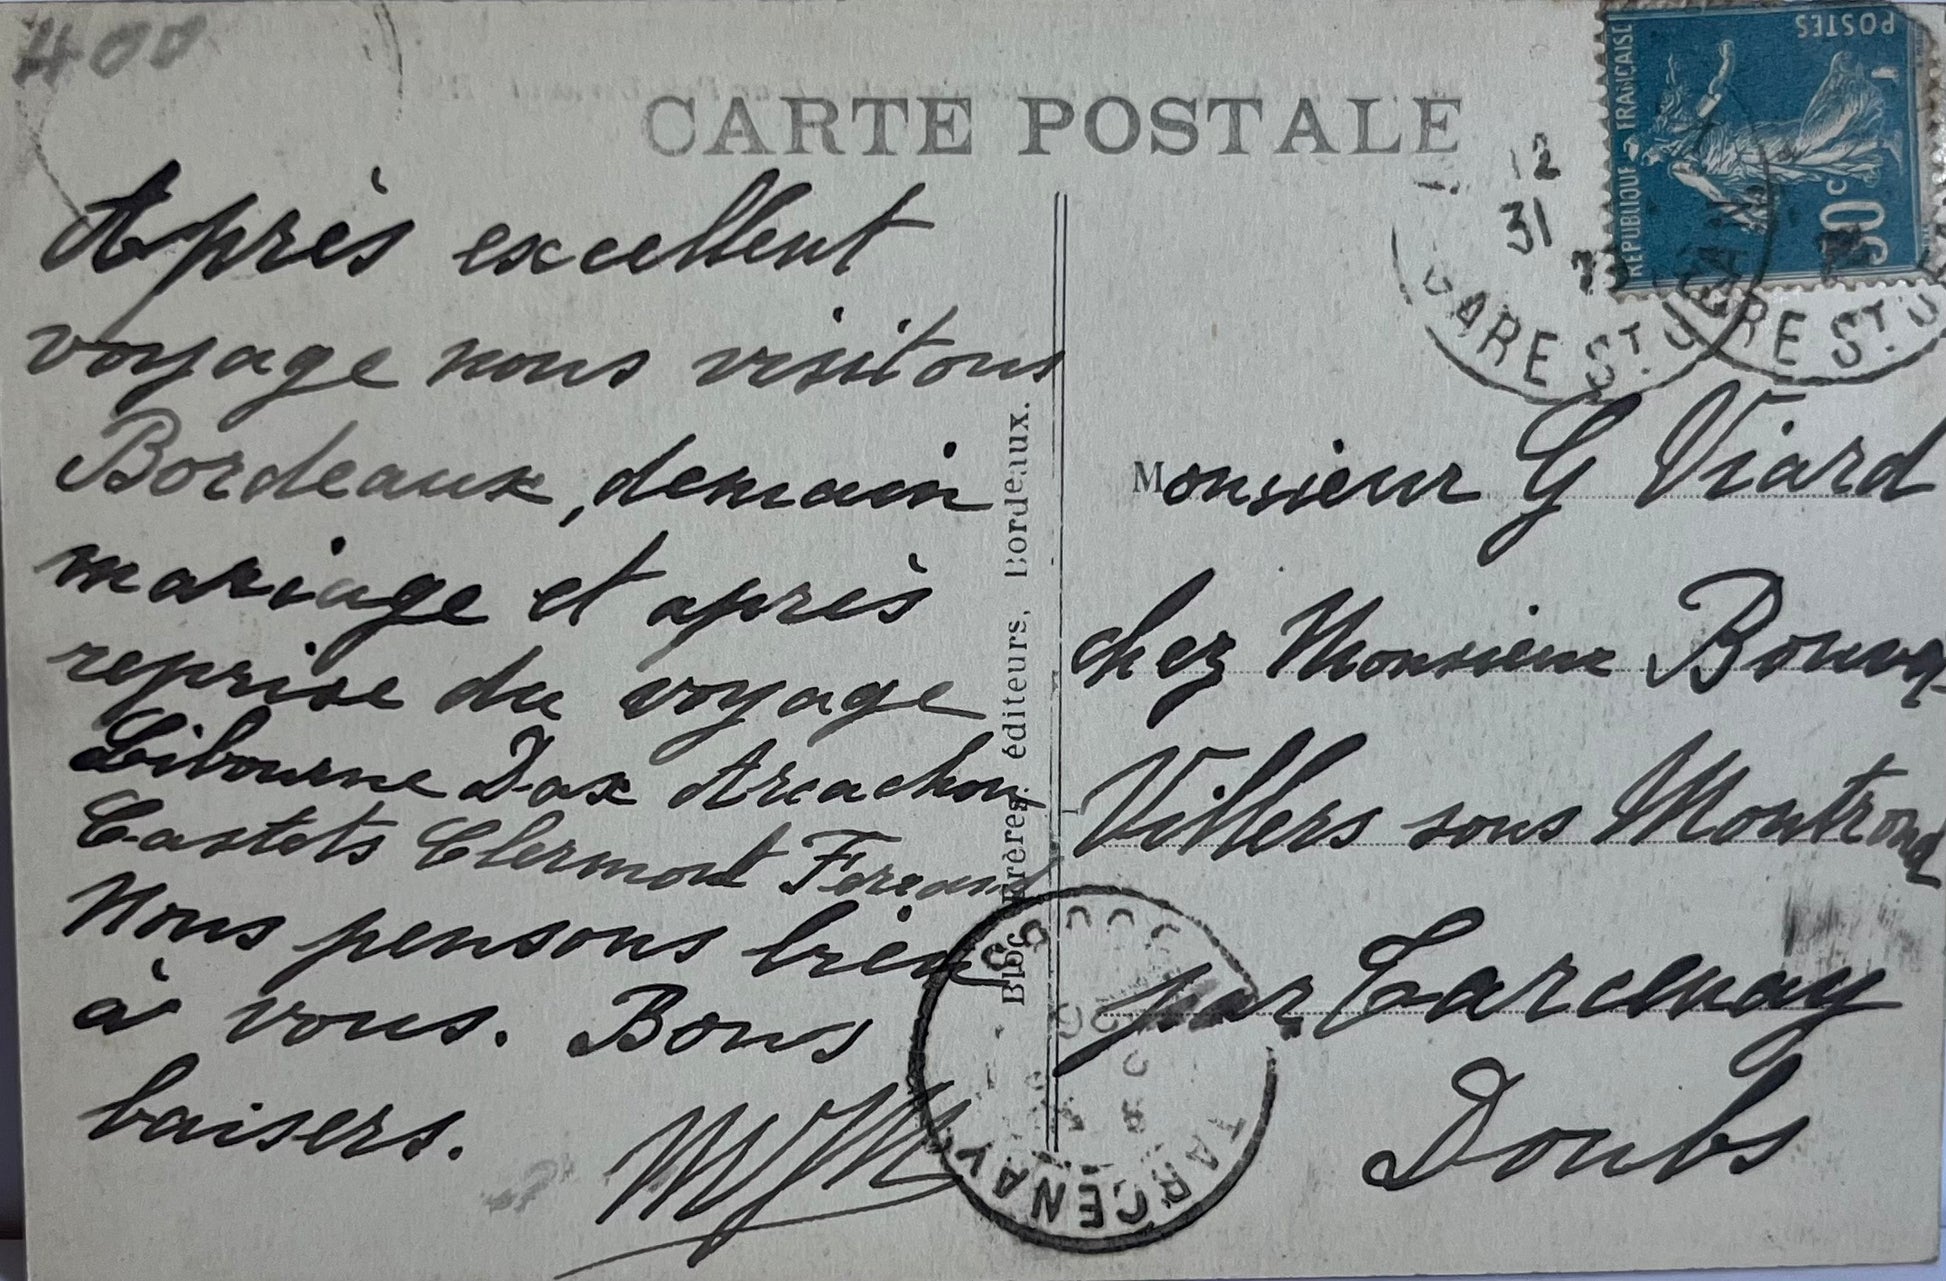 400
CARTE POSTALE
POSTES
REPUBLIQUE FRANÇAISE
12
31
GARE ST JEAN
Après excellent
voyage nous visitons
Bordeaux, demain
mariage et après
reprise du voyage
Libourne Dax Arcachon
Castets Clermont Ferrand
Nous pensons bien
à vous. Bons
baisers.
Bloc Frères, éditeurs, Bordeaux.
Monsieur G Viard
chez Monsieur
Villers sous Montrond
par Tarcenay
Doubs
TARCENAY
DOUBS